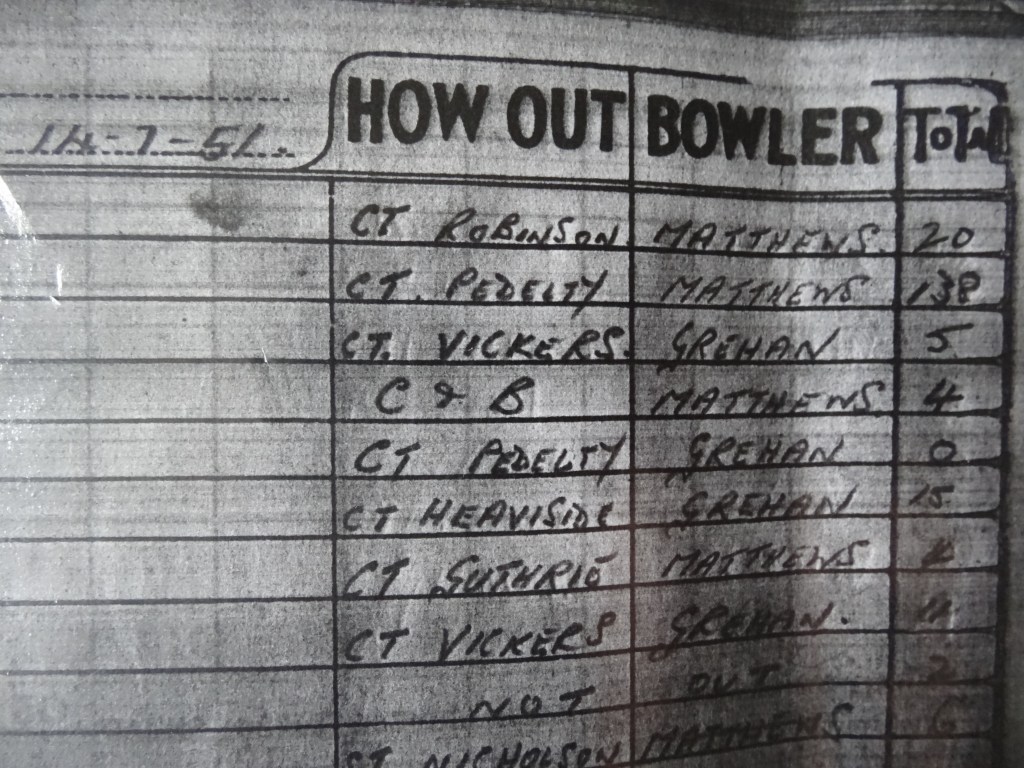 HOW OUT BOWLER TOTAL
14-7-51.
CT ROBINSON MATTHEWS. 20
CT. PEDELTY MATTHEWS 138
CT. VICKERS. GREHAN 5
C & B MATTHEWS 4
CT PEDELTY GREHAN 0
CT HEAVISIDE GREHAN 15
CT GUTHRIE MATTHEWS
CT VICKERS GREHAN.
NOT OUT 2
CT NICHOLSON MATTHEWS 6